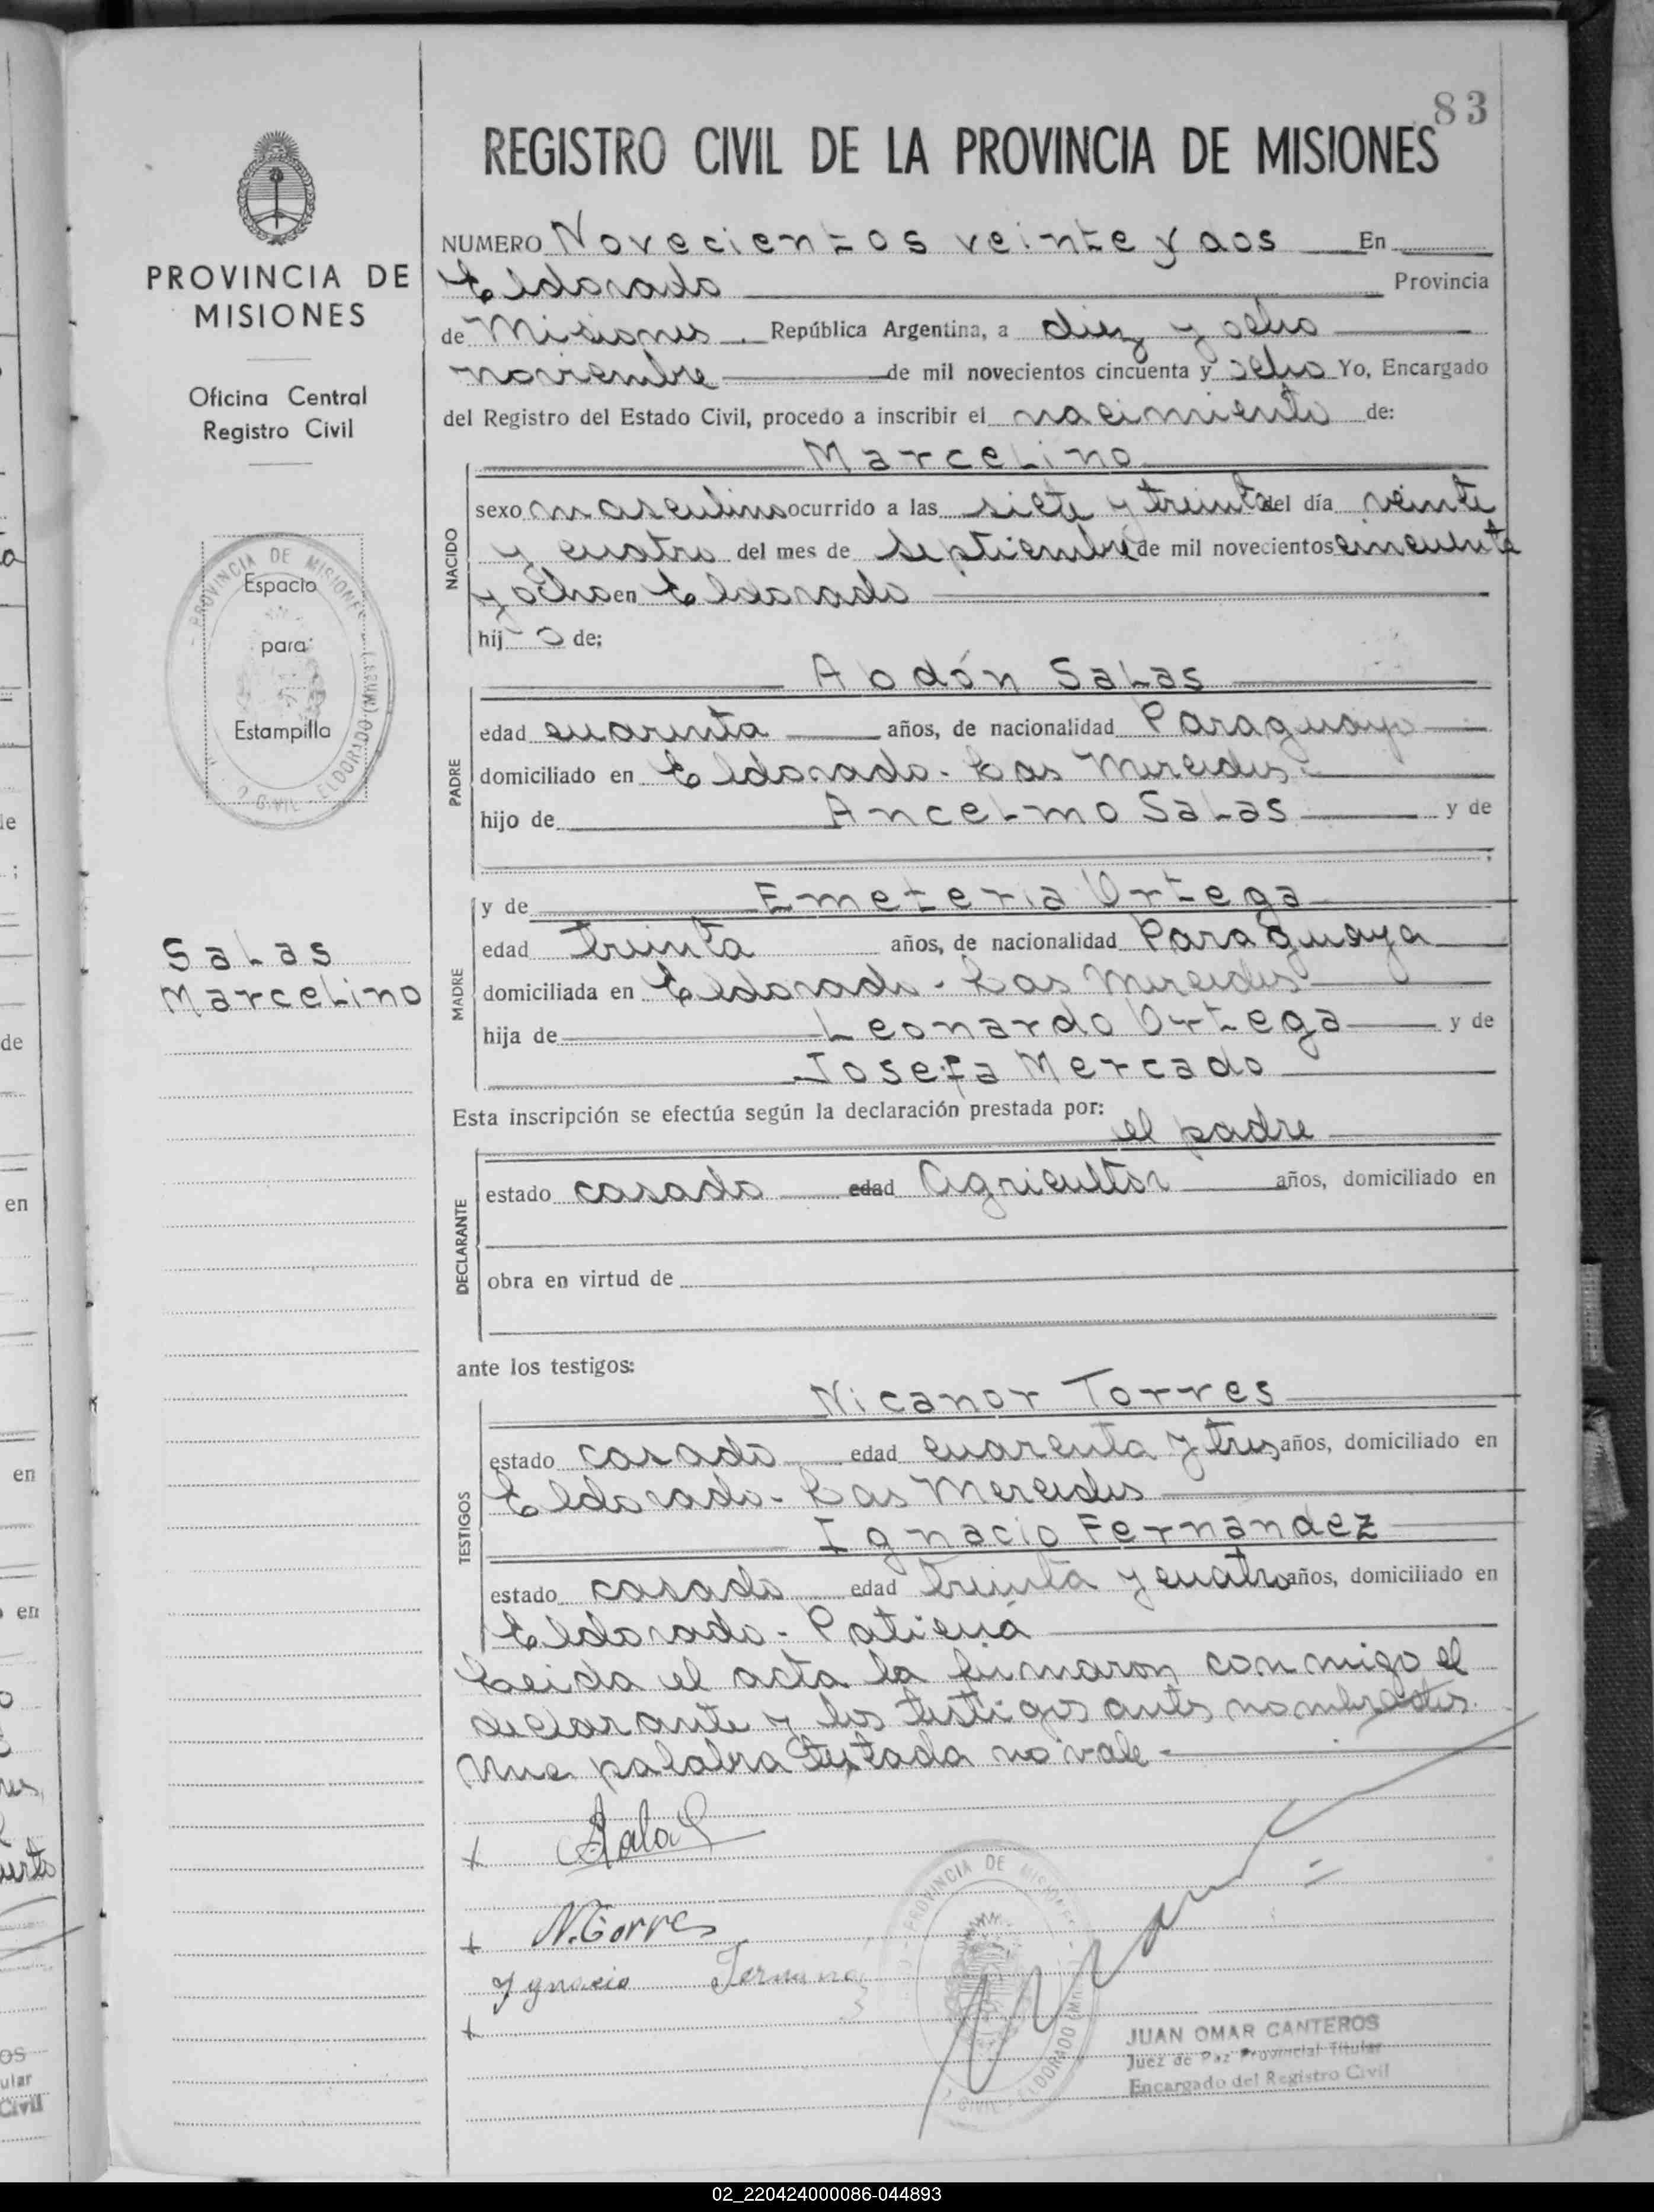 83
REGISTRO CIVIL DE LA PROVINCIA DE MISIONES
PROVINCIA DE
MISIONES
Oficina Central
Registro Civil
PROVINCIA DE MISIONES
Espacio
para
Estampilla
ELDORADO (Mnes.)
Salas
Marcelino
NUMERO Novecientos veinte y dos En
Eldorado Provincia
de Misiones República Argentina, a diez y ocho
noviembre de mil novecientos cincuenta y ocho Yo, Encargado
del Registro del Estado Civil, procedo a inscribir el nacimiento de:
NACIDO
Marcelino
sexo masculino ocurrido a las siete y treinta del día veinte
y cuatro del mes de Septiembre de mil novecientos cincuenta
y ocho en Eldorado
hijo de:
PADRE
Abdón Salas
edad cuarenta años, de nacionalidad Paraguayo
domiciliado en Eldorado - Las Mercedes
hijo de Ancelmo Salas y de
MADRE
y de Emeteria Ortega
edad treinta años, de nacionalidad Paraguaya
domiciliada en Eldorado - Las Mercedes
hija de Leonardo Ortega y de
Josefa Mercado
Esta inscripción se efectúa según la declaración prestada por:
el padre
DECLARANTE
estado casado edad Agricultor años, domiciliado en
obra en virtud de
ante los testigos:
TESTIGOS
Nicanor Torres
estado casado edad cuarenta y tres años, domiciliado en
Eldorado - Las Mercedes
Ignacio Fernandez
estado casado edad treinta y cuatro años, domiciliado en
Eldorado -
Leida el acta la firmaron conmigo el
declarante y los testigos antes nombrados.
Una palabra testada no vale -
x Salas
x N. Torres
Ygnacio
x
PROVINCIA DE MISIONES
ELDORADO (Mnes.)
JUAN OMAR CANTEROS
Juez de Paz Provincial Titular
Encargado del Registro Civil
02_220424000086-044893